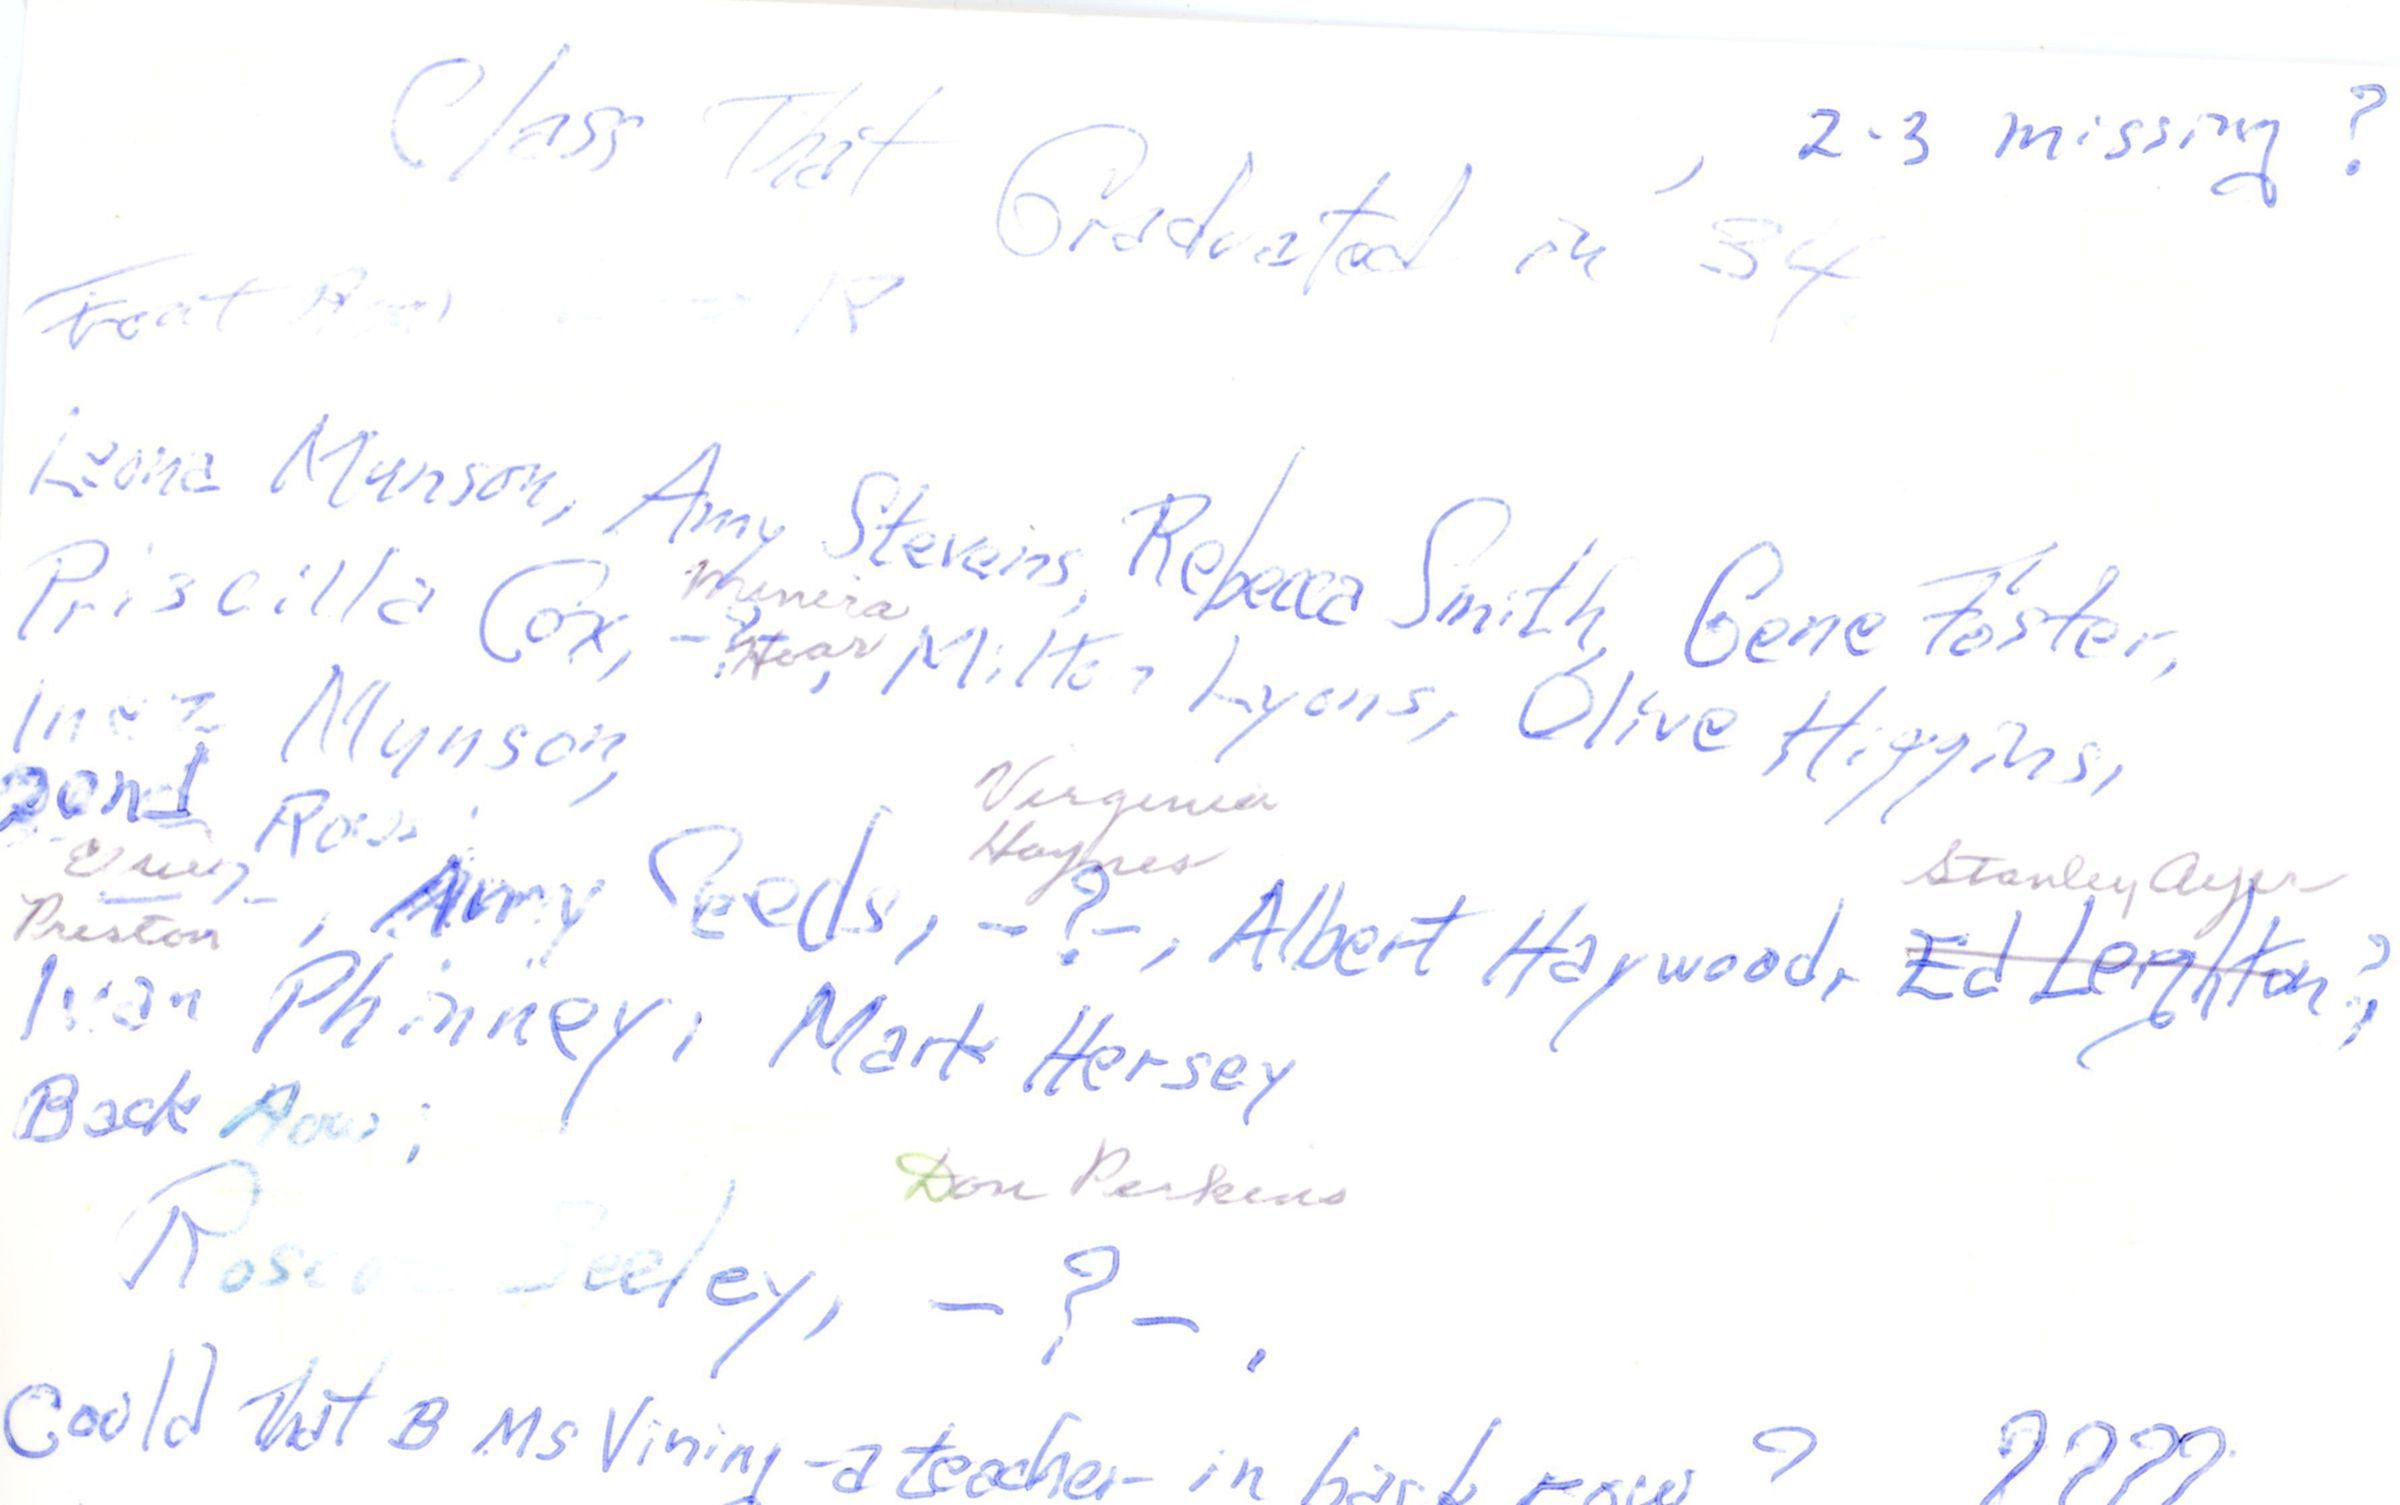 Class That Graduated in 34, 2-3 missing?
Front Row R
Leona Munson, Amy Stevens, Rebecca Smith, Gene Foster,
Priscilla Cox, -?-, Milton Lyons, Olive Higgins,
Inez Munson,
2ond Row:
Virginia
Haynes
Stanley Ayer
Preston, Amy Seeds, -?-, Albert Haywood, Ed Leighton?,
Ivan Phinney, Mark Hersey
Back Row:
Don Perkins
Roscoe Seeley, -?-.
Could that B Ms Vining - a teacher in back row? ????